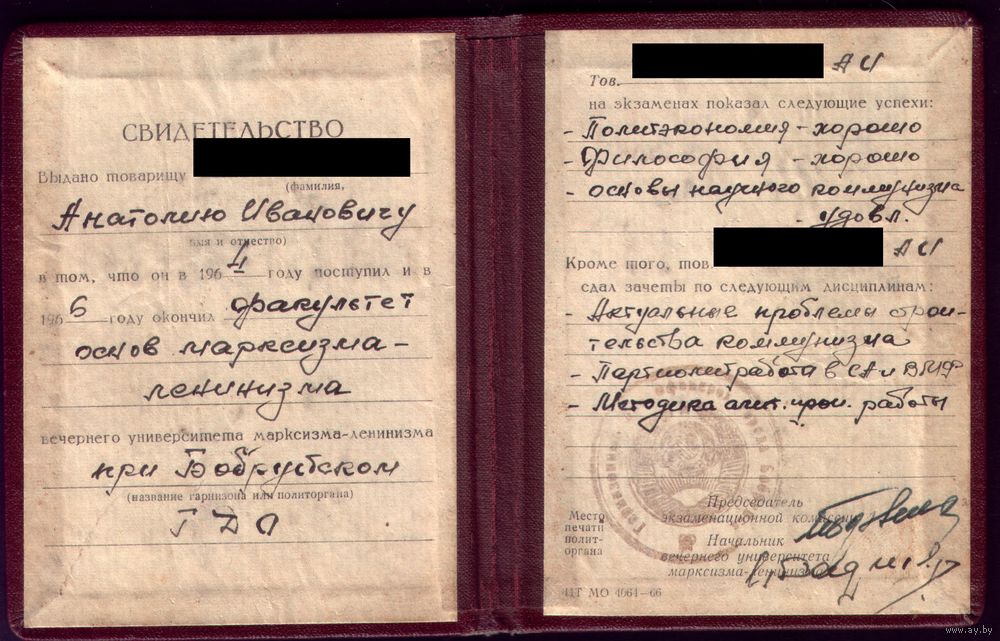 СВИДЕТЕЛЬСТВО
Выдано товарищу
(фамилия,
Анатолию Ивановичу
имя и отчество)
в том, что он в 1964 году поступил и в
1966 году окончил факультет
основ марксизма-
ленинизма
вечернего университета марксизма-ленинизма
при Бобруйском
(название гарнизона или политоргана)
ГДО
Тов. АИ
на экзаменах показал следующие успехи:
- Политэкономия - хорошо
- Философия - хорошо
- основы научного коммунизма
- удовл.
Кроме того, тов. АИ
сдал зачеты по следующим дисциплинам:
- Актуальные проблемы строи-
тельства коммунизма
- Партполитработа в СА и ВМФ
- Методика агит. проп. работы
Председатель
экзаменационной комиссии
Место
печати
полит-
органа
Начальник
вечернего университета
марксизма-ленинизма
МО 4064-66
www.ay.by